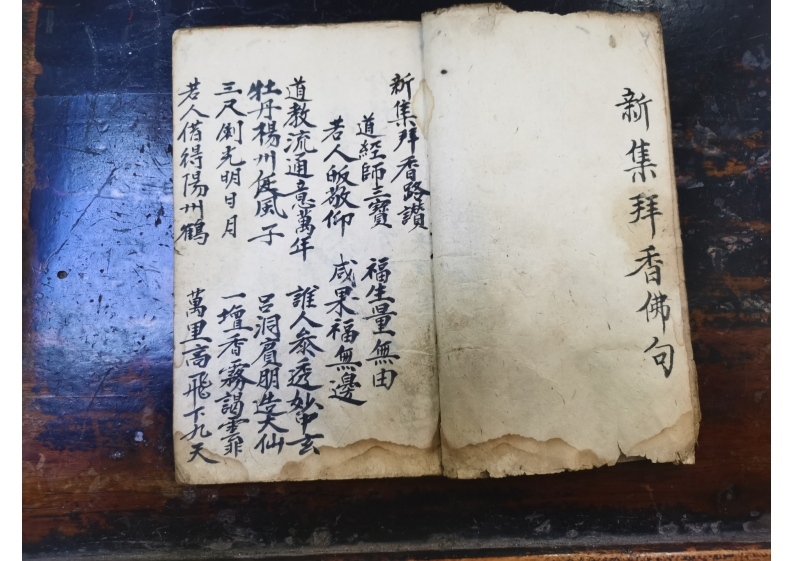 新集拜香佛句
新集拜香路讚
道經師三寶 福生量無由
若人皈敬仰 咸果福無邊
道教流通意萬年 誰人叅透妙中玄
牡丹楊州任風子 呂洞賓朋造大仙
三尺劍光明日月 一壇香霧謁雲霏
若人借得陽州鶴 萬里高飛下九天